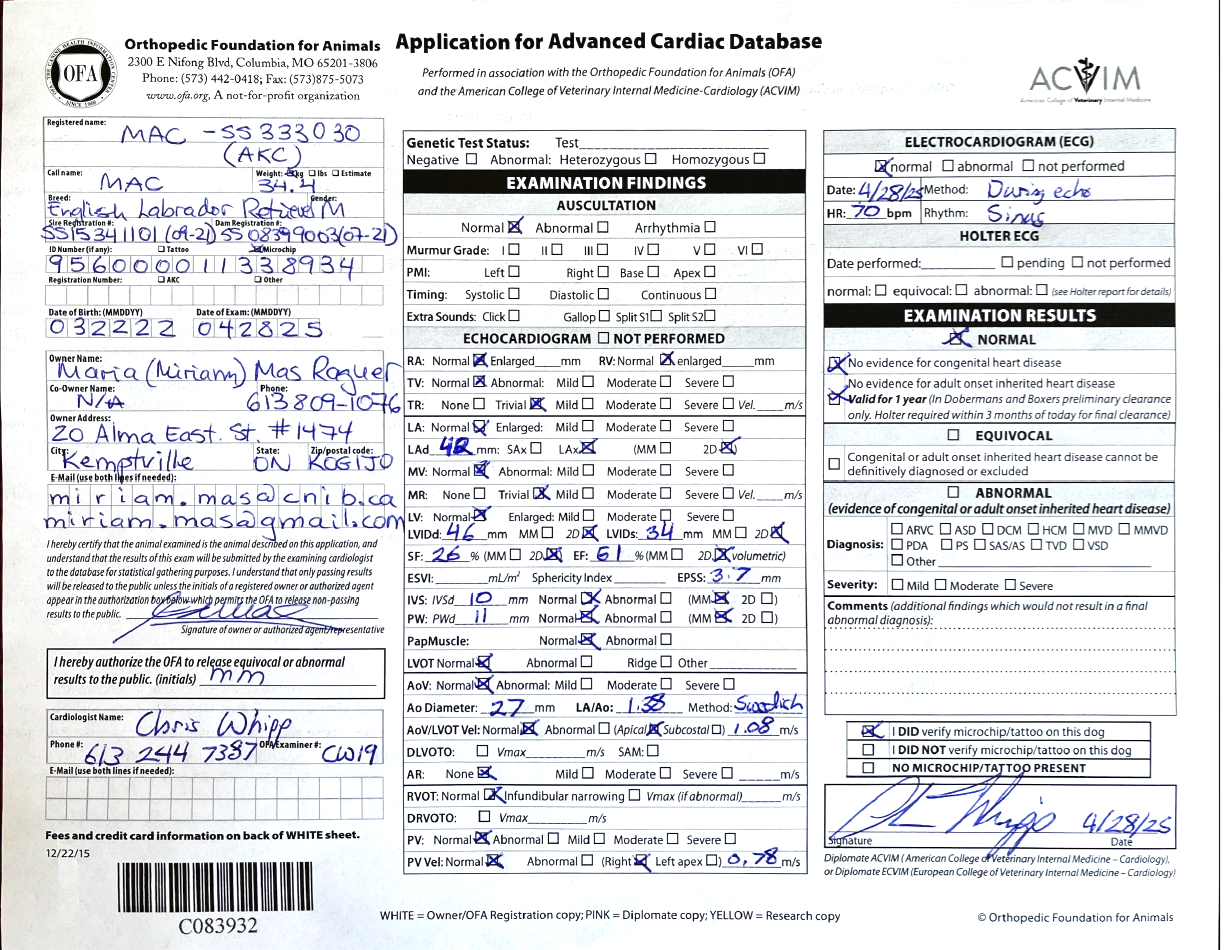 Orthopedic Foundation for Animals
2300 E Nifong Blvd, Columbia, MO 65201-3806
Phone: (573) 442-0418; Fax: (573)875-5073
www.ofa.org, A not-for-profit organization
THE CANINE HEALTH INFORMATION CENTER
OFA
SINCE 1966
Application for Advanced Cardiac Database
Performed in association with the Orthopedic Foundation for Animals (OFA)
and the American College of Veterinary Internal Medicine-Cardiology (ACVIM)
ACVIM
American College of Veterinary Internal Medicine
Registered name:
MAC - SS333030
(AKC)
Call name: MAC Weight: kg lbs Estimate 34.4
Breed: English Labrador Retriever Gender: M
Sire Registration #: SS15341101 (09-21) Dam Registration #: SS08399003 (07-21)
ID Number (if any): Tattoo Microchip
956000011338934
Registration Number: AKC Other
Date of Birth: (MMDDYY) Date of Exam: (MMDDYY)
032222 042825
Owner Name:
Maria (Miriam) Mas Roguer
Co-Owner Name: N/A Phone: 613 809-1076
Owner Address:
20 Alma East. St. #1474
City: Kemptville State: ON Zip/postal code: K0G1J0
E-Mail (use both lines if needed):
miriam.mas@cnib.ca
miriam.masa@gmail.com
I hereby certify that the animal examined is the animal described on this application, and
understand that the results of this exam will be submitted by the examining cardiologist
to the database for statistical gathering purposes. I understand that only passing results
will be released to the public unless the initials of a registered owner or authorized agent
appear in the authorization box below which permits the OFA to release non-passing
results to the public.
Signature of owner or authorized agent/representative
I hereby authorize the OFA to release equivocal or abnormal
results to the public. (initials) mm
Cardiologist Name: Chris Whipp
Phone #: 613 244 7387 OFA Examiner #: CW19
E-Mail (use both lines if needed):
Fees and credit card information on back of WHITE sheet.
12/22/15
C083932
Genetic Test Status: Test
Negative Abnormal: Heterozygous Homozygous
EXAMINATION FINDINGS
AUSCULTATION
Normal Abnormal Arrhythmia
Murmur Grade: I II III IV V VI
PMI: Left Right Base Apex
Timing: Systolic Diastolic Continuous
Extra Sounds: Click Gallop Split S1 Split S2
ECHOCARDIOGRAM NOT PERFORMED
RA: Normal Enlarged mm RV: Normal enlarged mm
TV: Normal Abnormal: Mild Moderate Severe
TR: None Trivial Mild Moderate Severe Vel. m/s
LA: Normal Enlarged: Mild Moderate Severe
LAd 42 mm: SAx LAx (MM 2D)
MV: Normal Abnormal: Mild Moderate Severe
MR: None Trivial Mild Moderate Severe Vel. m/s
LV: Normal Enlarged: Mild Moderate Severe
LVIDd: 46 mm MM 2D LVIDs: 34 mm MM 2D
SF: 26 % (MM 2D) EF: 61 % (MM 2D volumetric)
ESVI: mL/m² Sphericity Index EPSS: 3.7 mm
IVS: IVSd 10 mm Normal Abnormal (MM 2D)
PW: PWd 11 mm Normal Abnormal (MM 2D)
PapMuscle: Normal Abnormal
LVOT Normal Abnormal Ridge Other
AoV: Normal Abnormal: Mild Moderate Severe
Ao Diameter: 27 mm LA/Ao: 1.38 Method: Swedish
AoV/LVOT Vel: Normal Abnormal (Apical Subcostal) 1.08 m/s
DLVOTO: Vmax m/s SAM:
AR: None Mild Moderate Severe m/s
RVOT: Normal Infundibular narrowing Vmax (if abnormal) m/s
DRVOTO: Vmax m/s
PV: Normal Abnormal Mild Moderate Severe
PV Vel: Normal Abnormal (Right Left apex) 0,78 m/s
ELECTROCARDIOGRAM (ECG)
normal abnormal not performed
Date: 4/28/25 Method: During echo
HR: 70 bpm Rhythm: Sinus
HOLTER ECG
Date performed: pending not performed
normal: equivocal: abnormal: (see Holter report for details)
EXAMINATION RESULTS
NORMAL
No evidence for congenital heart disease
No evidence for adult onset inherited heart disease
Valid for 1 year (In Dobermans and Boxers preliminary clearance
only. Holter required within 3 months of today for final clearance)
EQUIVOCAL
Congenital or adult onset inherited heart disease cannot be
definitively diagnosed or excluded
ABNORMAL
(evidence of congenital or adult onset inherited heart disease)
Diagnosis: ARVC ASD DCM HCM MVD MMVD
PDA PS SAS/AS TVD VSD
Other
Severity: Mild Moderate Severe
Comments (additional findings which would not result in a final
abnormal diagnosis):
I DID verify microchip/tattoo on this dog
I DID NOT verify microchip/tattoo on this dog
NO MICROCHIP/TATTOO PRESENT
4/28/25
Signature Date
Diplomate ACVIM (American College of Veterinary Internal Medicine – Cardiology),
or Diplomate ECVIM (European College of Veterinary Internal Medicine – Cardiology)
WHITE = Owner/OFA Registration copy; PINK = Diplomate copy; YELLOW = Research copy
© Orthopedic Foundation for Animals